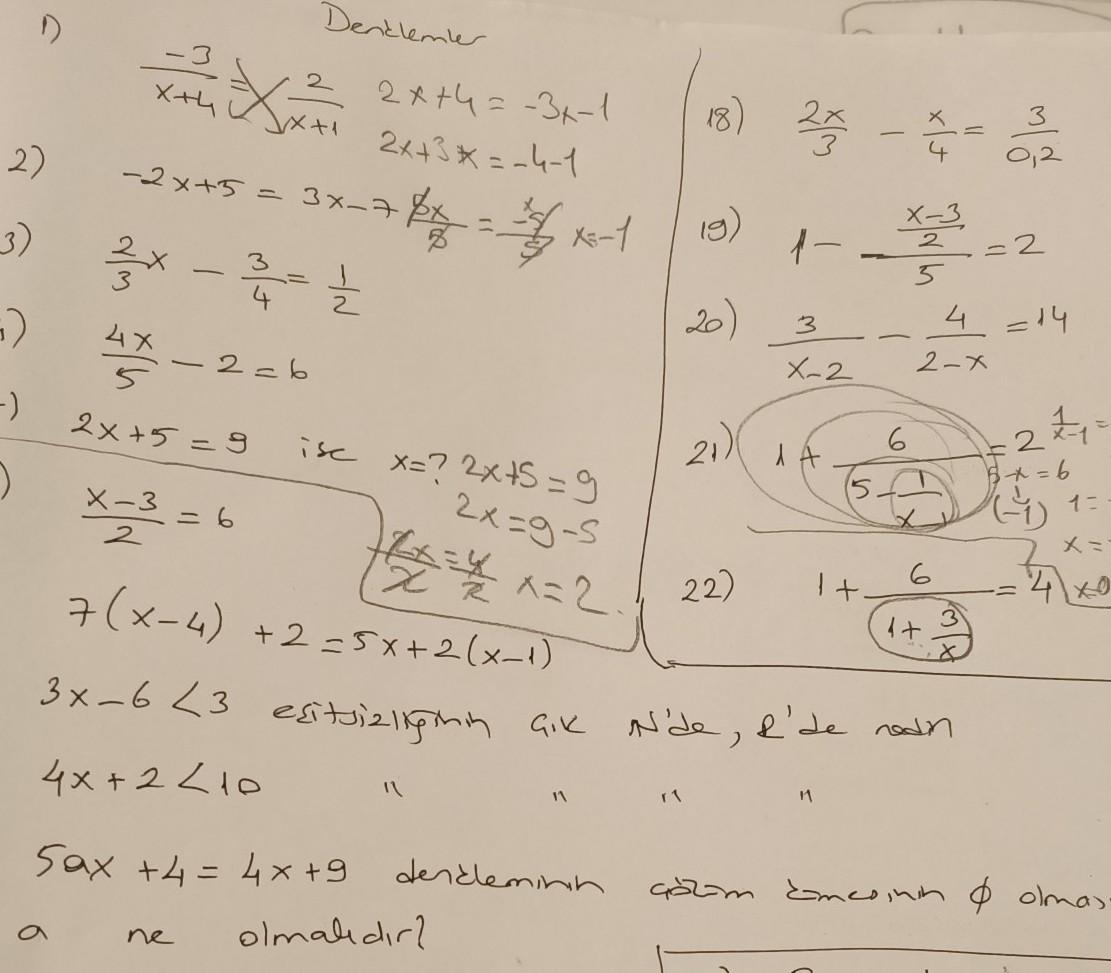 Denklemler
1)
-3/(x+4) = 2/(x+1)   2x+4 = -3x-1
2x+3x = -4-1
2) -2x+5 = 3x-7   5x/5 = -5/5   x=-1
3) 2/3 x - 3/4 = 1/2
4x/5 - 2 = 6
2x+5 = 9 ise x=? 2x+5=9
2x=9-5
(x-3)/2 = 6
2x/2 = 4/2   x=2
7(x-4) +2 = 5x+2(x-1)
3x-6 <3 eşitsizliğinin N'de, R'de
4x+2 <10   "   "   "   "
5ax +4 = 4x+9 denkleminin çözüm kümesinin ∅
a ne olmalıdır?
18) 2x/3 - x/4 = 3/0,2
19) 1 - ((x-3)/2)/5 = 2
20) 3/(x-2) - 4/(2-x) = 14
21) 1 + 6/(5 - 1/(x-1)) = 2   1/(x-1) =
5-x=6
(1/-1)   1=
x=
22) 1 + 6/(1 + 3/x) = 4   x=0